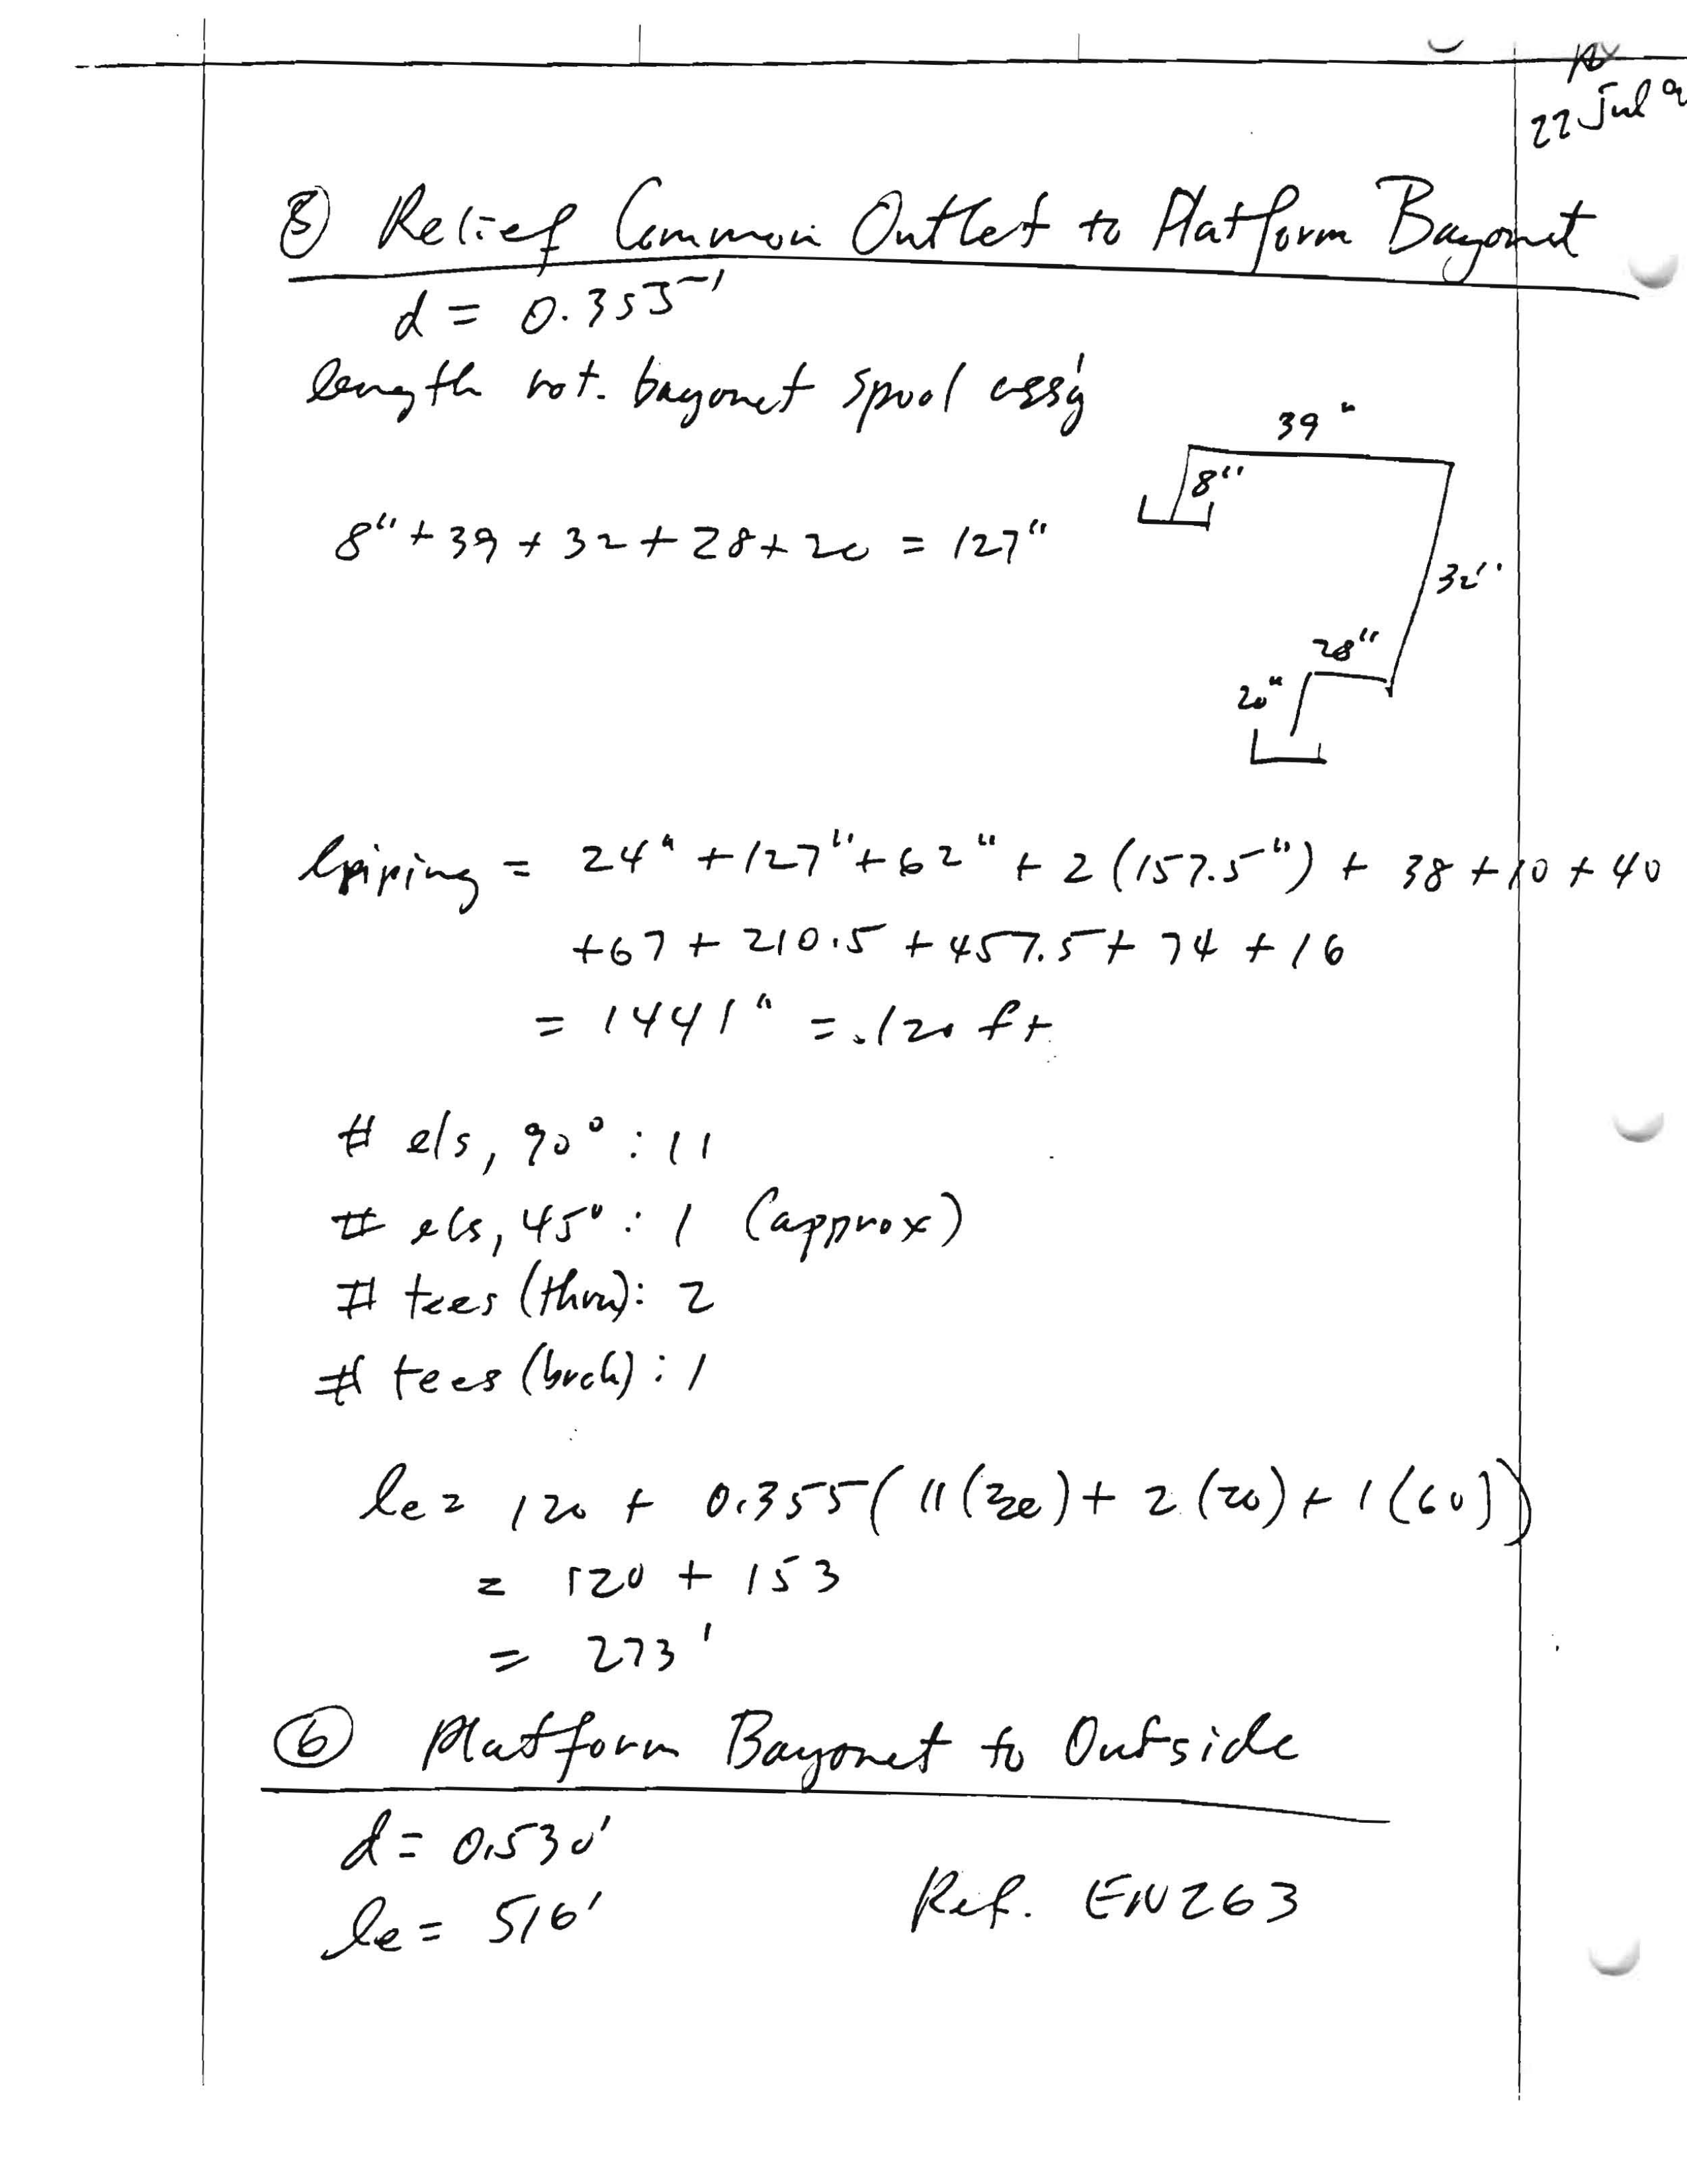 22 Jul
⑤ Relief Common Outlet to Platform Bayonet
d = 0.355'
length rot. bayonet spool ass'y
39"
8"
8" + 39 + 32 + 28 + 20 = 127"
32"
28"
20"
lpiping = 24" + 127" + 62" + 2 (157.5") + 38 + 10 + 40
+ 67 + 210.5 + 457.5 + 74 + 16
= 1441" = 120 ft
# els, 90° : 11
# els, 45° : 1 (approx)
# tees (thru): 2
# tees (brch) : 1
le = 120 + 0.355 ( 11 (30) + 2 (20) + 1 (60))
= 120 + 153
= 273'
⑥ Platform Bayonet to Outside
d = 0.530'
le = 516'
Ref. EN263